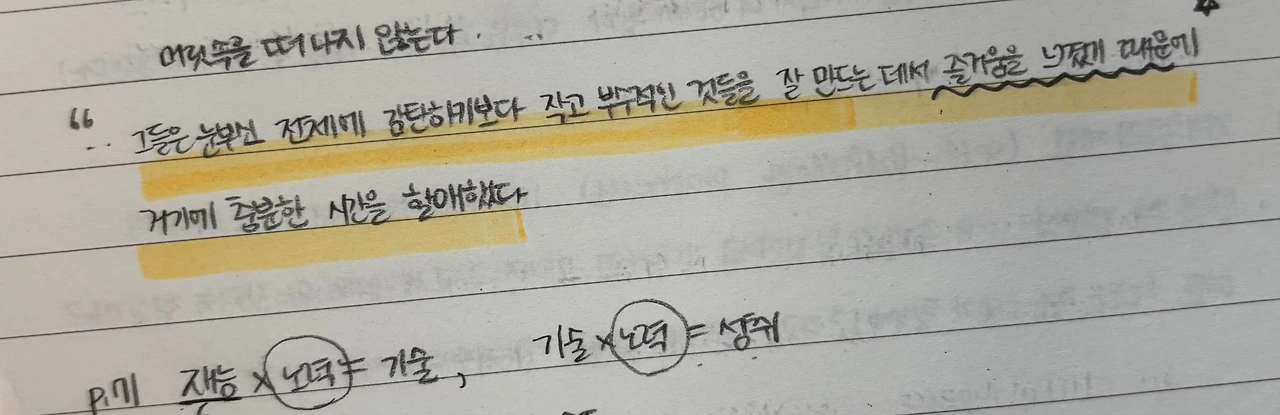 머릿속을 떠나지 않는다.
“ 그들은 눈부신 전체에 감탄하기보다 작고 부수적인 것들을 잘 만드는 데서 즐거움을 느꼈기 때문에
거기에 충분한 시간을 할애했다
p.71 재능 × 노력 = 기술, 기술 × 노력 = 성취